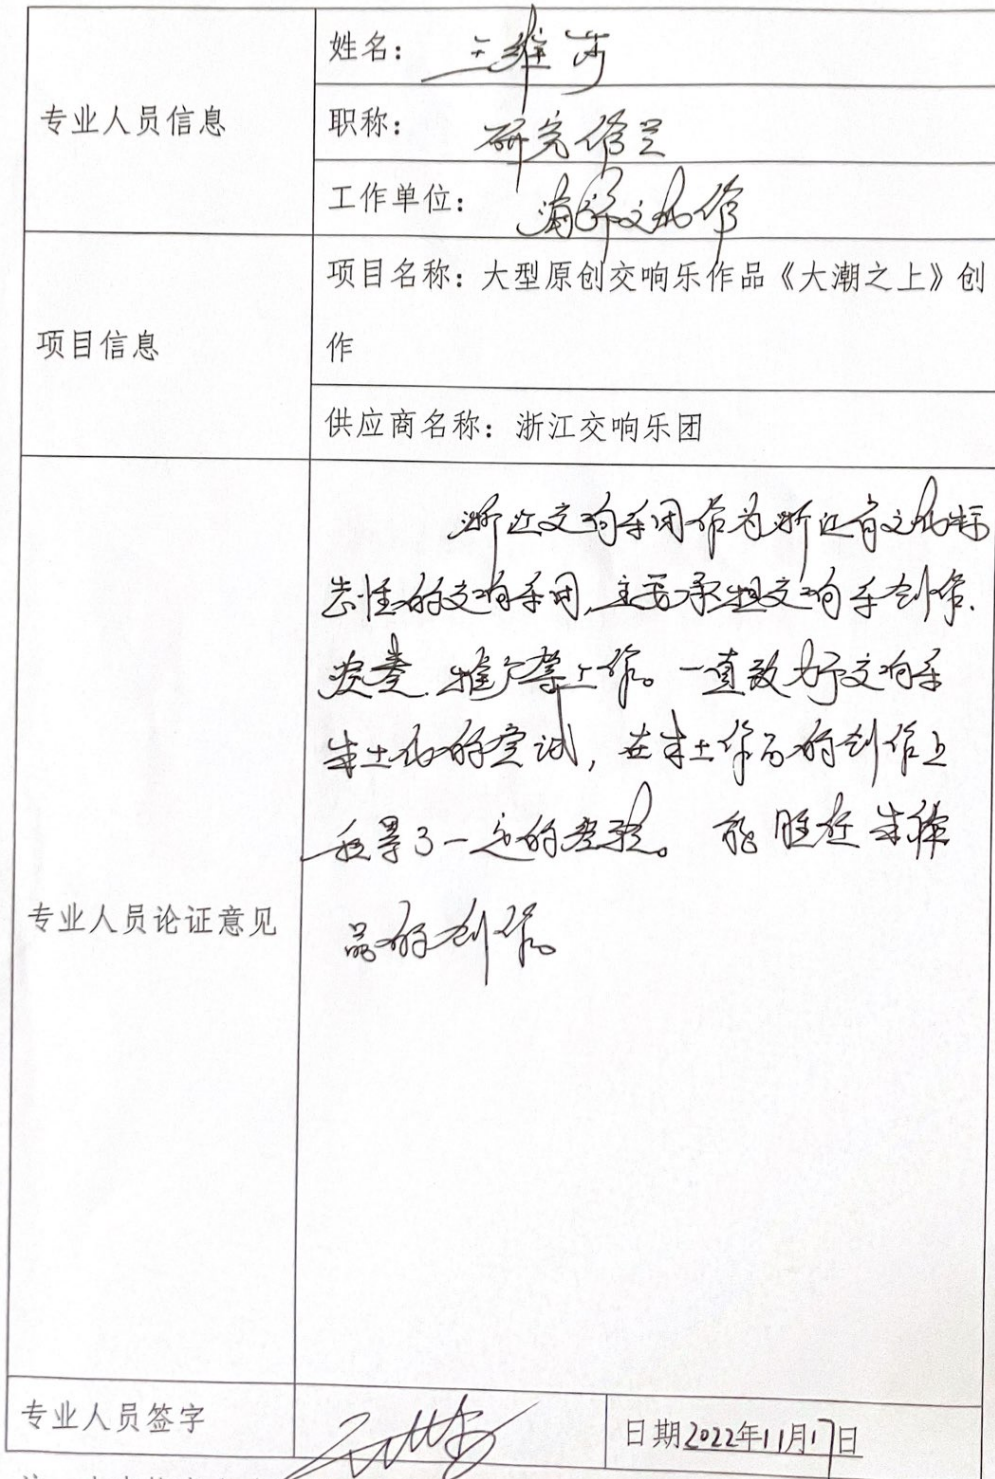 专业人员信息
姓名：
职称：研究馆员
工作单位：海宁文化馆
项目信息
项目名称：大型原创交响乐作品《大潮之上》创
作
供应商名称：浙江交响乐团
专业人员论证意见
浙江交响乐团作为浙江省文化标
志性的交响乐团，主要承担交响乐创作、
演奏、推广等工作。一直致力于交响乐
本土化的尝试，在本土作品的创作上
积累了一定的经验。能胜任本作
品的创作。
专业人员签字
日期2022年11月17日